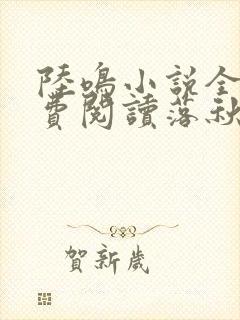 陸鳴小説全
費閱讀落秋
賀新歲